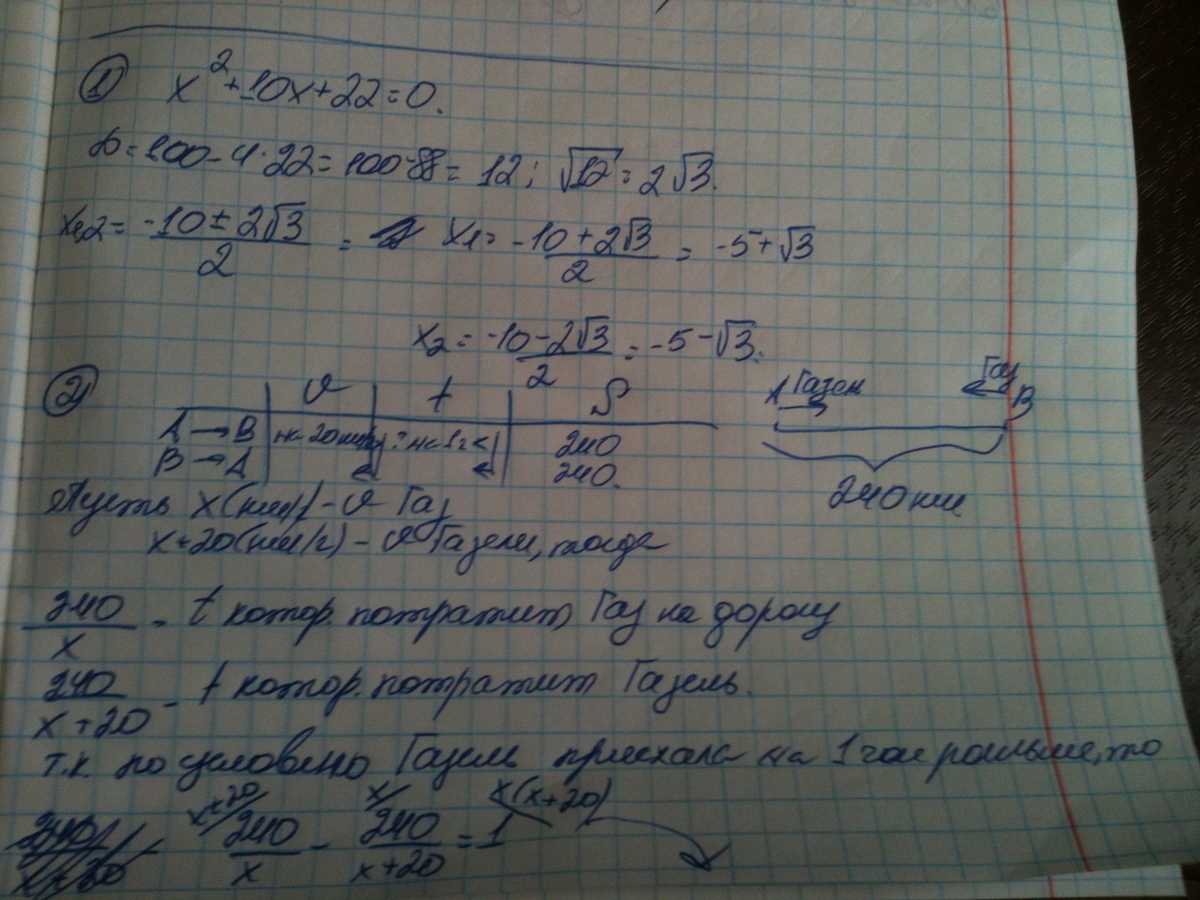 1) x² + 10x + 22 = 0.
D = 100 - 4·22 = 100 - 88 = 12; √12 = 2√3.
x1,2 = (-10 ± 2√3)/2 = x1 = (-10 + 2√3)/2 = -5 + √3
x2 = (-10 - 2√3)/2 = -5 - √3.
2) v t S
A → B на 20 км/ч ? на 1 ч < 240
B → A 240.
A Газел Газ B
240 км
Пусть x (км/ч) - v Газ
x + 20 (км/ч) - v Газели, тогда
240/x - t котор. потратит Газ на дорогу
240/(x + 20) - t котор. потратит Газель.
т.к по условию Газель приехала на 1 час раньше, то
x+20/ x/ x(x+20)
240/x - 240/(x+20) = 1